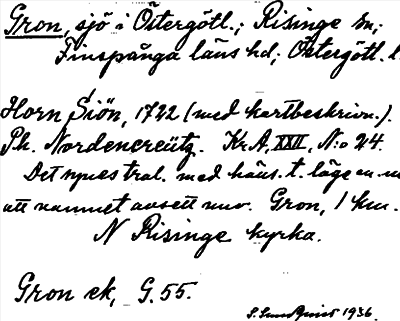 Gron, sjö i Östergötl.; Risinge sn;
Finspånga läns hd; Östergötl. l.
Horn Siön, 1722 (med kartbeskrivn.).
Ph. Nordencreütz. Kr.A, XXII, N:o 24.
Det synes tal. med häns. t. läge
att namnet avsett nuv. Gron, 1 km.
N Risinge kyrka.
Gron ek, G. 55.
S. Lundqvist 1936.